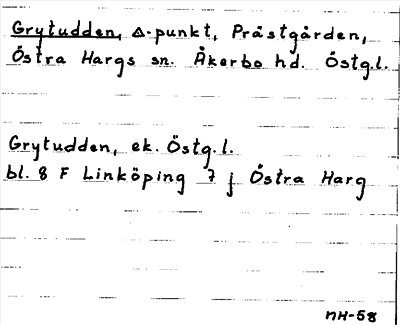 Grytudden, △-punkt, Prästgården,
Östra Hargs sn. Åkerbo hd. Östg.l.
Grytudden, ek. Östg.l.
bl. 8 F Linköping 7 j Östra Harg
MH-58